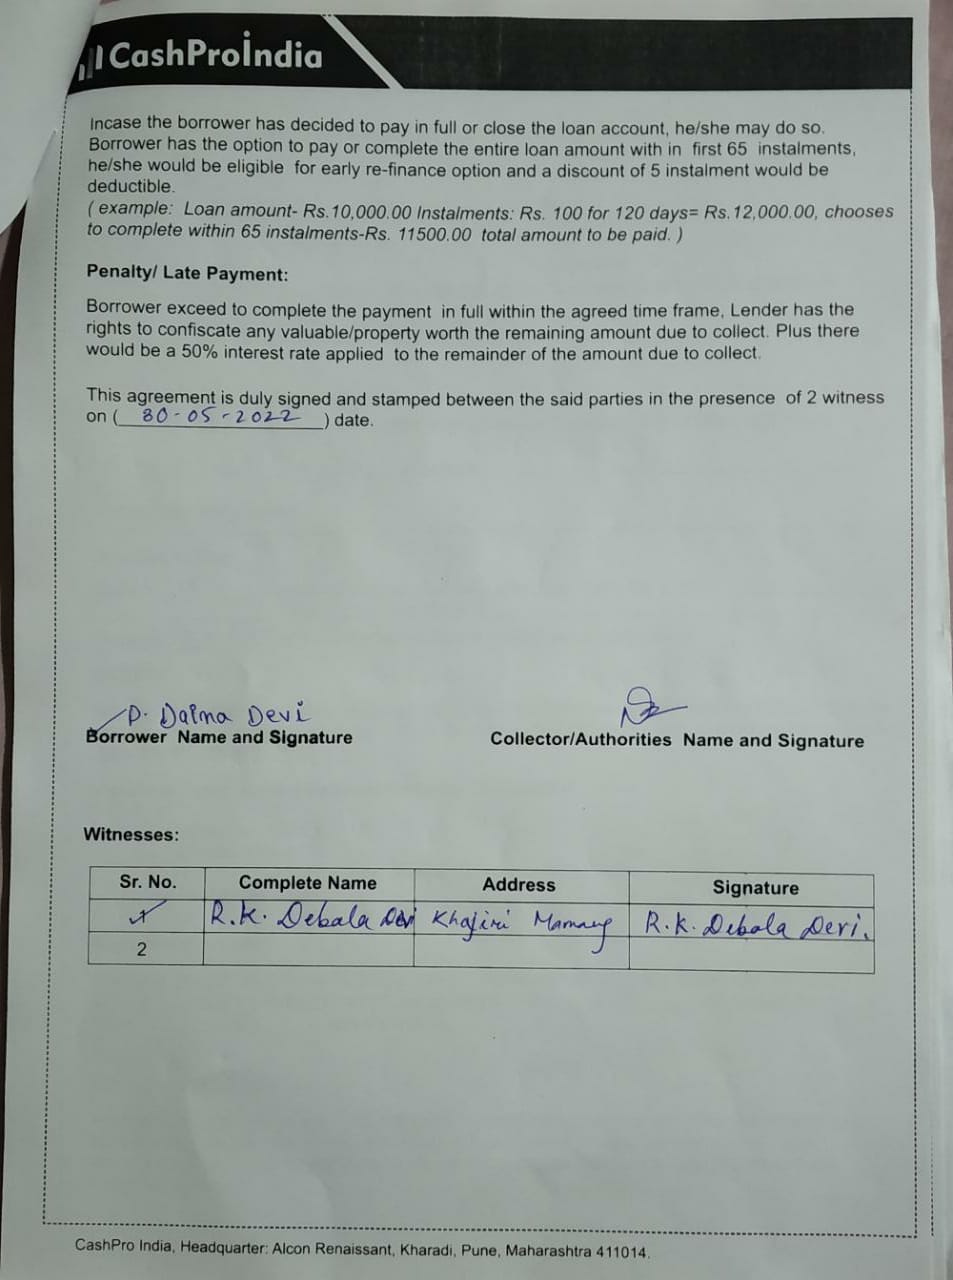 CashProIndia
Incase the borrower has decided to pay in full or close the loan account, he/she may do so.
Borrower has the option to pay or complete the entire loan amount with in first 65 instalments,
he/she would be eligible for early re-finance option and a discount of 5 instalment would be
deductible.
( example: Loan amount- Rs.10,000.00 Instalments: Rs. 100 for 120 days= Rs.12,000.00, chooses
to complete within 65 instalments-Rs. 11500.00 total amount to be paid. )
Penalty/ Late Payment:
Borrower exceed to complete the payment in full within the agreed time frame, Lender has the
rights to confiscate any valuable/property worth the remaining amount due to collect. Plus there
would be a 50% interest rate applied to the remainder of the amount due to collect.
This agreement is duly signed and stamped between the said parties in the presence of 2 witness
on ( 30-05-2022 ) date.
P. Daima Devi
Borrower Name and Signature Collector/Authorities Name and Signature
Witnesses:
Sr. No. Complete Name Address Signature
R.K. Debala Devi Khajiri R.K. Debala Devi.
2
CashPro India, Headquarter: Alcon Renaissant, Kharadi, Pune, Maharashtra 411014.